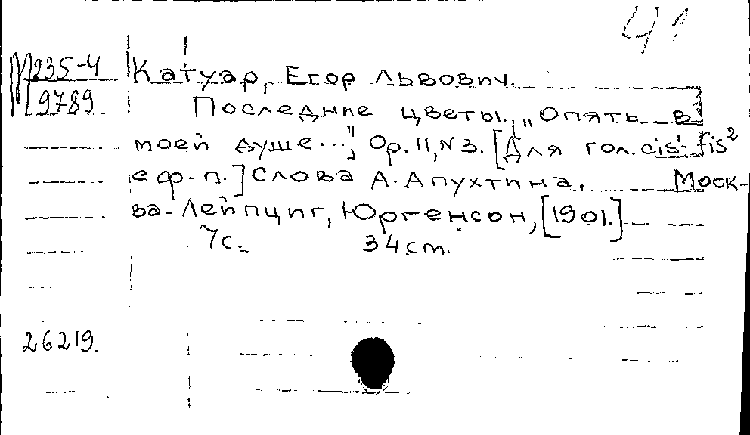 41
М235-4
9789
Катуар, Егор Львович.
Последние цветы. „Опять в
моей душе..." Ор. 11, №3. [Для гол. cis¹-fis²
с ф-п.] Слова А. Апухтина. Моск-
ва-Лейпциг, Юргенсон, [1901.]
7с. 34 cm.
26219.